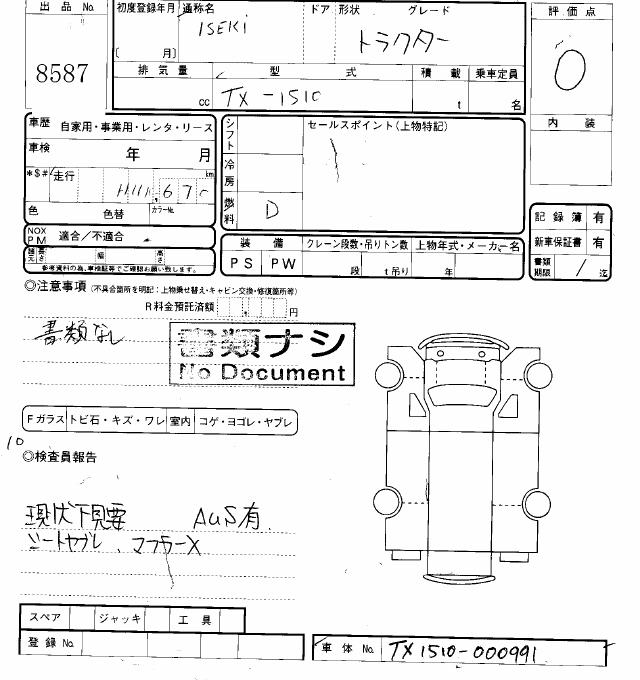 出品No. 初度登録年月 通称名 ドア 形状 グレード 評価点
ISEKI トラクター
8587 〔 月〕 0
排気量 型式 積載 乗車定員
cc TX-1510 t 名
車歴 自家用・事業用・レンタ・リース シフト セールスポイント(上物特記) 内装
車検 年 月
*$# 走行 km 冷房
670
色 色替 カラーNo. 燃料 D
NOX PM 適合/不適合 装備 クレーン段数・吊りトン数 上物年式・メーカー名 記録簿 有
長さ 幅 高さ PS PW 段 t吊り 年 新車保証書 有
参考資料の為、車検証等でご確認お願い致します。 書類期限 / 迄
◎注意事項(不具合箇所を明記:上物乗せ替え・キャビン交換・修復箇所等)
R料金預託済額 円
書類なし
書類ナシ
No Document
Fガラス トビ石・キズ・ワレ 室内 コゲ・ヨゴレ・ヤブレ
10
◎検査員報告
現状下見要 AUS有
シートヤブレ、マフラーX
スペア ジャッキ 工具
登録No. 車体No. TX1510-000991